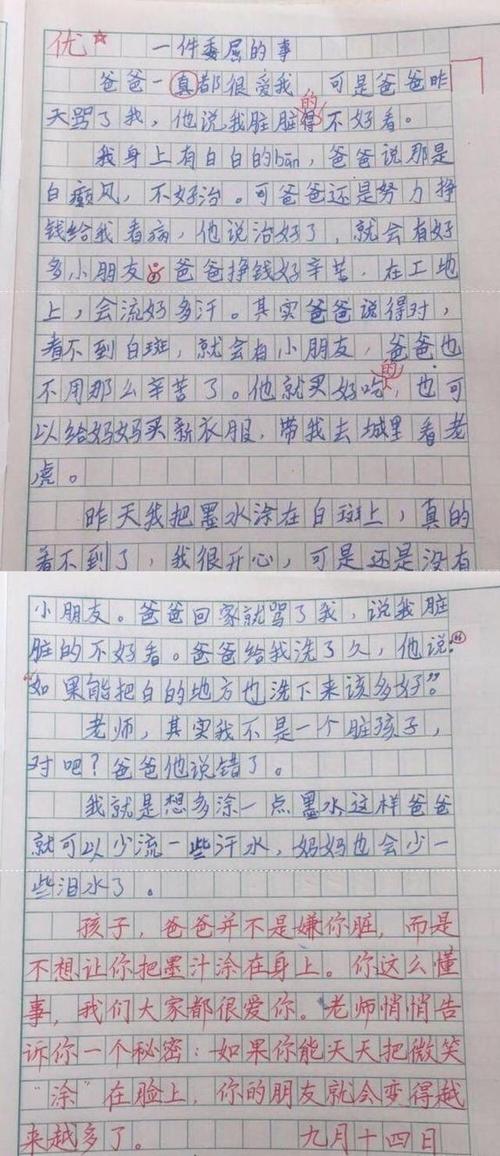 优
一件委屈的事
爸爸一真都很爱我 可是爸爸昨
天骂了我，他说我脏脏得不好看。
的
我身上有白白的bān，爸爸说那是
白癜风，不好治。可爸爸还是努力挣
钱给我看病，他说治好了，就会有好
多小朋友。爸爸挣钱好辛苦，在工地
上，会流好多汗。其实爸爸说得对，
看不到白斑，就会有小朋友，爸爸也
不用那么辛苦了。他就买好吃的，也可
以给妈妈买新衣服，带我去城里看老
虎。
昨天我把墨水涂在白斑上，真的
看不到了，我很开心，可是还是没有
小朋友。爸爸回家就骂了我，说我脏
脏的不好看。爸爸给我洗了久，他说：“
“如果能把白的地方也洗下来该多好”。
老师，其实我不是一个脏孩子，
对吧？爸爸他说错了。
我就是想多涂一点墨水这样爸爸
就可以少流一些汗水，妈妈也会少一
些泪水了。
孩子，爸爸并不是嫌你脏，而是
不想让你把墨汁涂在身上。你这么懂
事，我们大家都很爱你。老师悄悄告
诉你一个秘密：如果你能天天把微笑
“涂”在脸上，你的朋友就会变得越
来越多了。 九月十四日